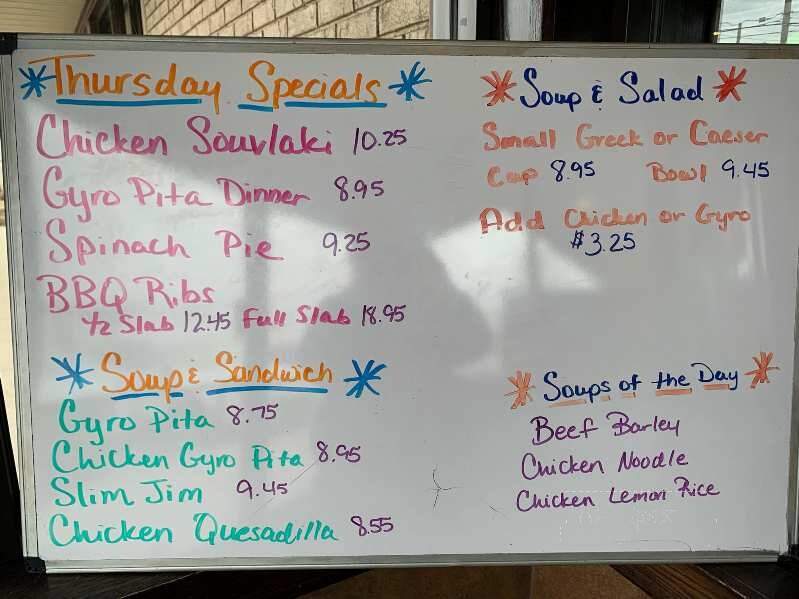 Thursday Specials
Chicken Souvlaki 10.25
Gyro Pita Dinner 8.95
Spinach Pie 9.25
BBQ Ribs
1/2 Slab 12.45 Full Slab 18.95
Soup & Sandwich
Gyro Pita 8.75
Chicken Gyro Pita 8.95
Slim Jim 9.45
Chicken Quesadilla 8.55
Soup & Salad
Small Greek or Caeser
Cup 8.95 Bowl 9.45
Add Chicken or Gyro
$3.25
Soups of the Day
Beef Barley
Chicken Noodle
Chicken Lemon Rice